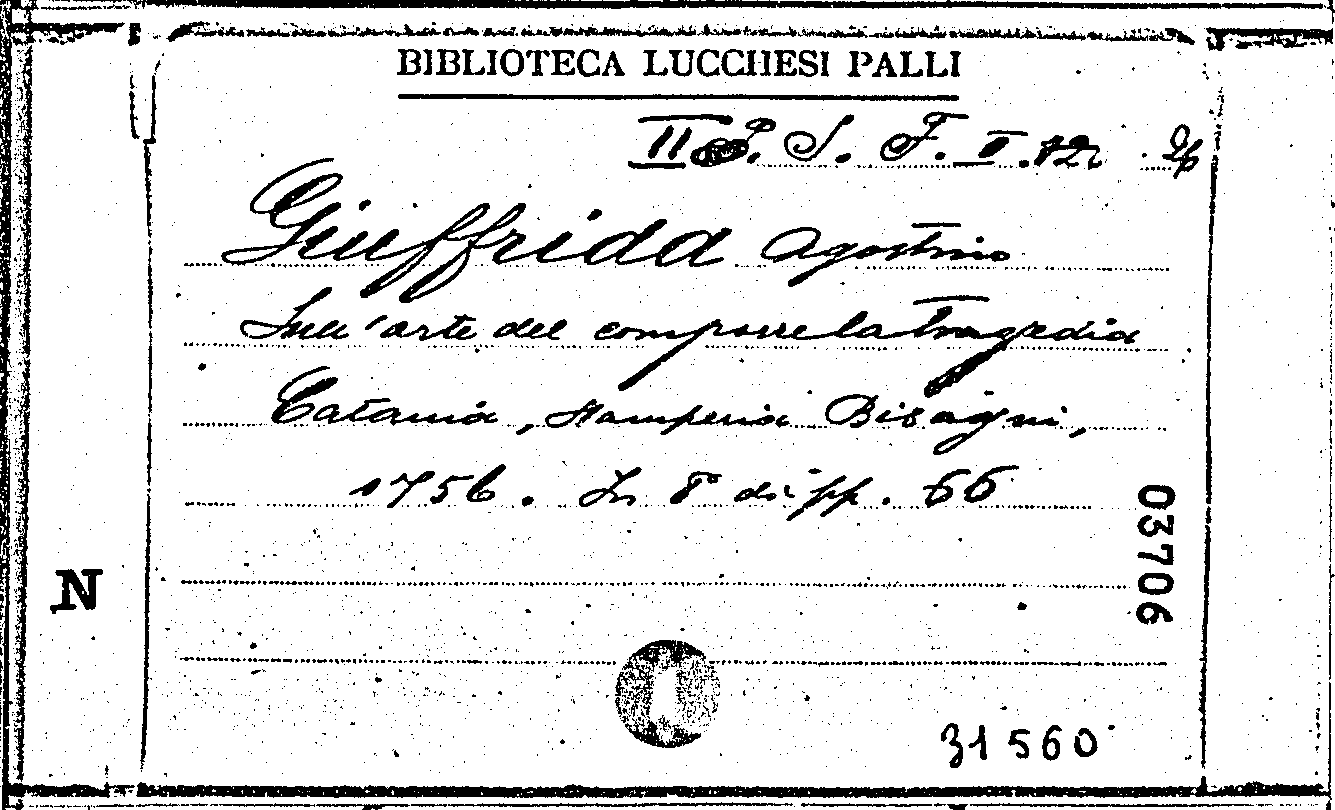 BIBLIOTECA LUCCHESI PALLI
II P. S. F. II.
Giuffrida Agostino
Sull'arte del comporre la tragedia
Catania, Stamperia Bisagni,
1756. In 8° di pp. 66
03706
N
31560